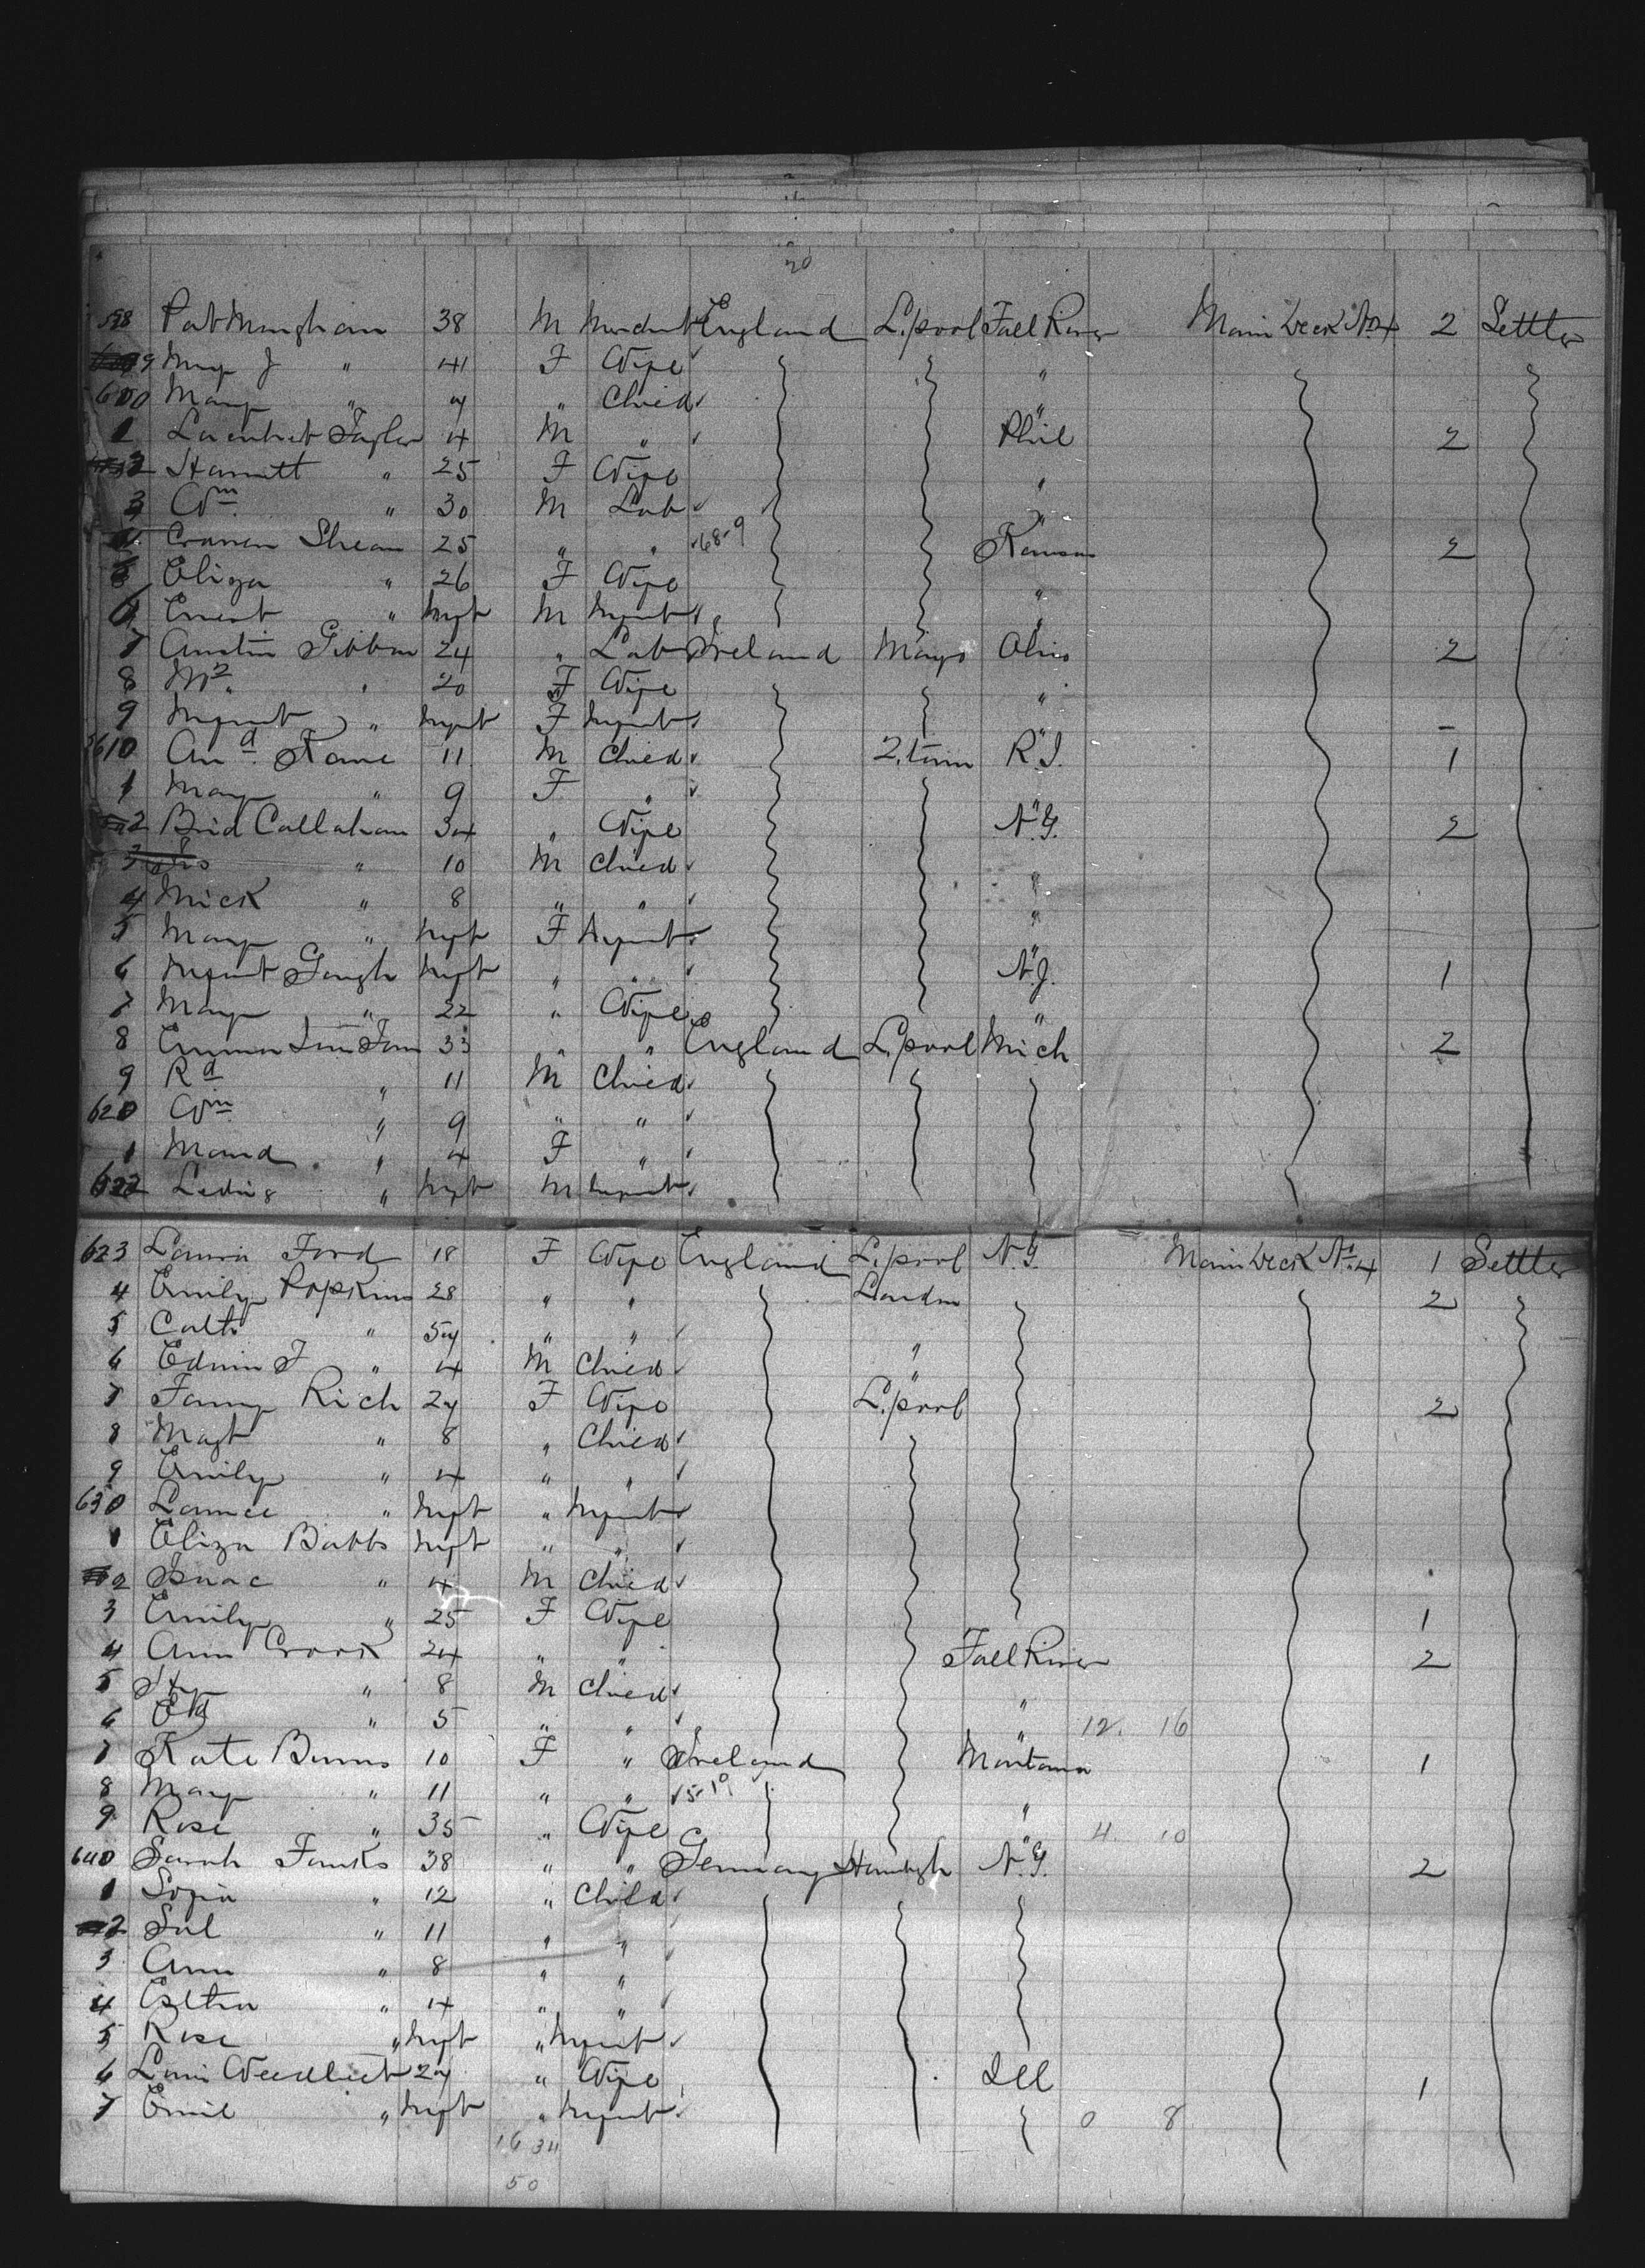 20
598 Pat Mangham 38 M England L.pool Fall River Main Deck No. 4 2 Settler
9 J " 41 F Wife "
600 Mary " 7 " Child "
1 Taylor 4 M " Phil 2
2 Harriett " 25 F Wife "
3 Wm " 30 M Lab "
4 25 " " 68-9 Kansas 2
5 Eliza " 26 F Wife "
6 Ernest " Inft M Infant "
7 Austin Gibbon 24 " Lab Ireland Mayo Ohio 2
8 " 20 F Wife "
9 Infant " Inft F Infant "
610 And Kane 11 M Child R.I. 1
1 Mary " 9 F " "
2 Brid Callahan 34 " Wife N.Y. 2
3 " 10 M Child "
4 Mick " 8 " " "
5 Mary " Inft F Infant "
6 Infant Gough Inft " " N.J. 1
7 Mary " 22 " Wife "
8 Emma 33 " " England L.pool Mich 2
9 Rd " 11 M Child
620 Wm " 9 " "
1 Maud " 4 F "
622 " Inft M Infant
623 Laura Ford 18 F Wife England L.pool N.Y. Main Deck No. 4 1 Settler
4 Emily Popkins 28 " " London 2
5 " 57 " " "
6 Edwin J " 4 M Child "
7 Fanny Rich 27 F Wife L.pool 2
8 Magt " 8 " Child
9 Emily " 4 " "
630 " Inft " Infant
1 Eliza Babbs Inft " "
2 Isaac " 4 M Child
3 Emily " 25 F Wife 1
4 Ann Crook 24 " " Fall River 2
5 Hy " 8 M Child "
6 " 5 " " " 12. 16
7 Kate Burns 10 F " Ireland Montana 1
8 Mary " 11 " " "
9 Rose " 35 " Wife " 4. 10
640 Sarah Funks 38 " " Germany Hambgh N.Y. 2
1 Sopia " 12 " Child
2 Sal " 11 " "
3 Ann " 8 " "
4 " 4 " "
5 Rose " Inft " Infant
6 27 " Wife Ill 1
7 Emil " Inft " Infant 0 8
16 34
50